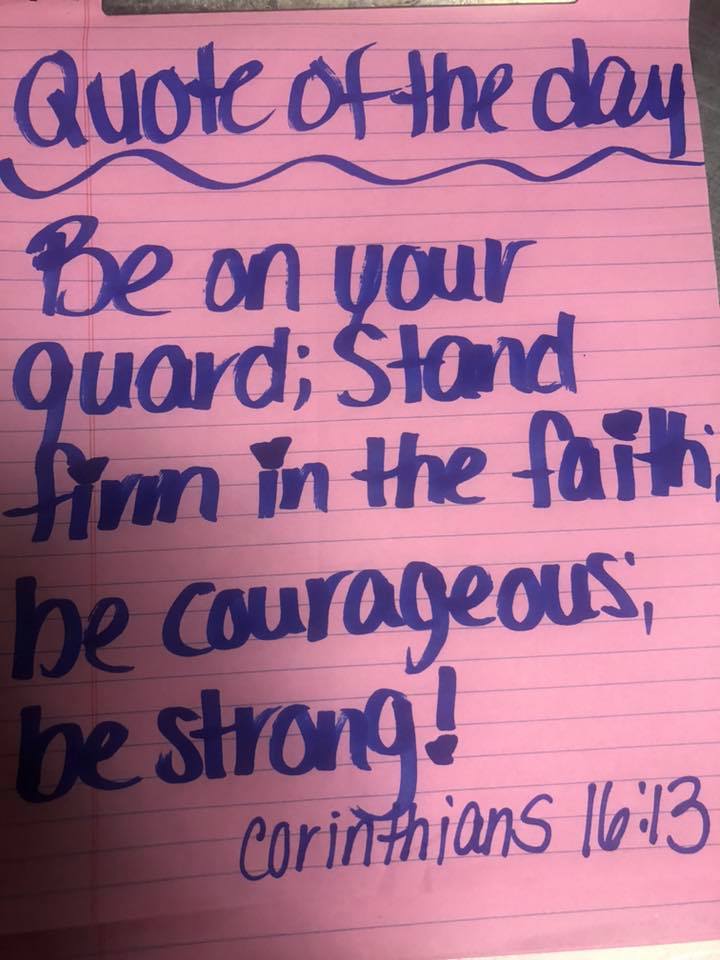 Quote of the day
Be on your
guard; Stand
firm in the faith;
be courageous;
be strong!
Corinthians 16:13